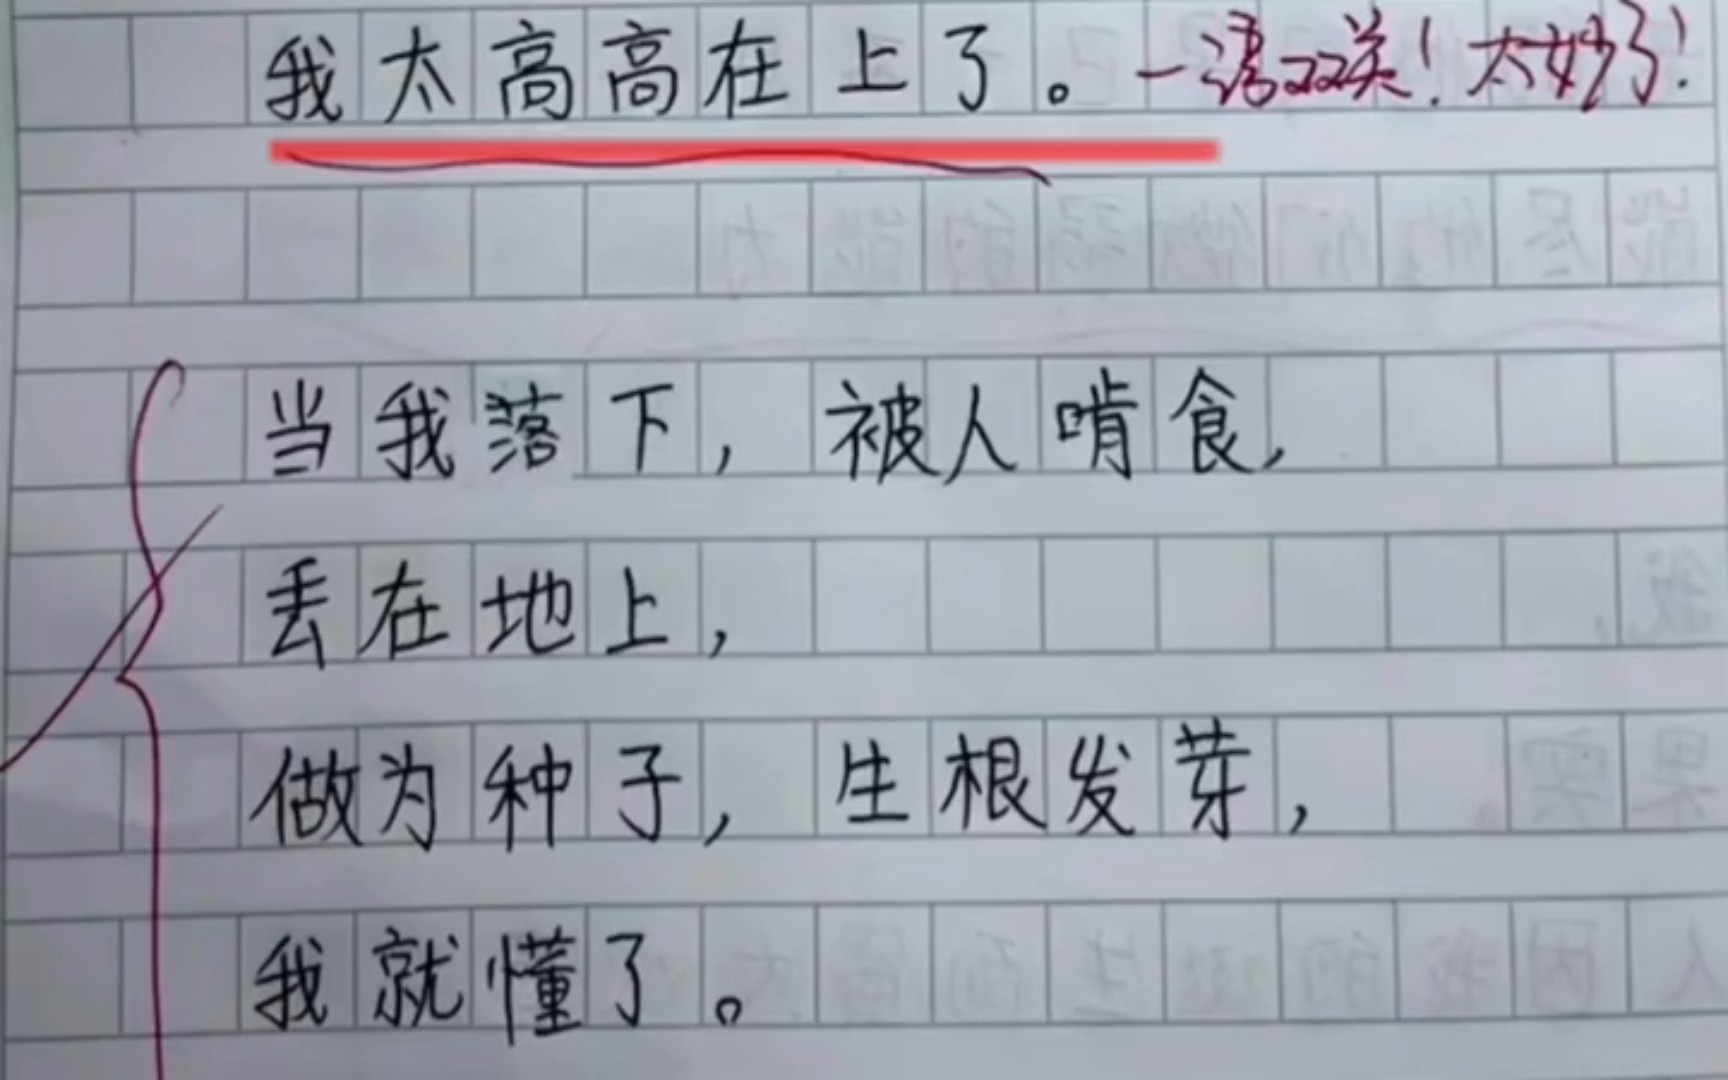 我太高高在上了。一语双关！太妙了！
当我落下，被人啃食，
丢在地上，
做为种子，生根发芽，
我就懂了。